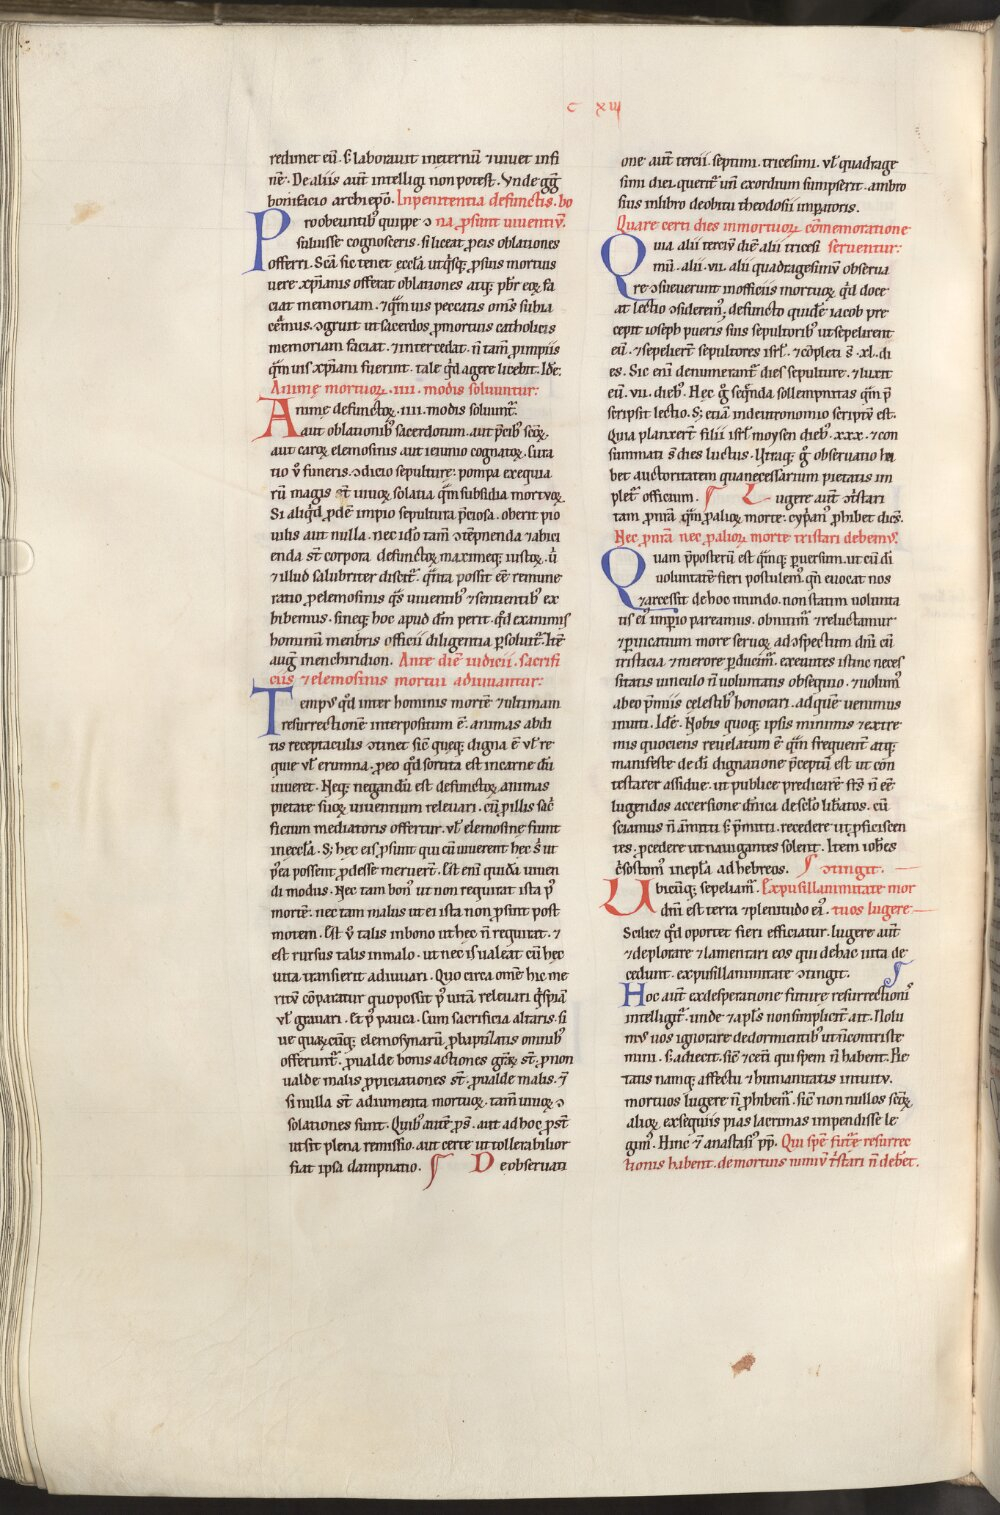 C XIII
redimet eū. s; laborauit ineternū ⁊ uiuet infi
nē. De aliis aut̄ intelligi non potest. Vnde gg̅
bonifacio archiepo. In penitentia defunctis. bo
Pro obeuntib; quippe ꝯ na ꝓsunt uiuentiū.
suluisse cognosceris. si liceat ꝓ eis oblationes
offerri. Sc̄a sic tenet eccl̄a. ut q̇sq; ꝓ suis mortuis
uere xp̄ianis offerat oblationes atq; pb̄r eoꝝ fa
ciat memoriam. ⁊ q̄muis peccatis om̄s subia
ceamus. ꝯgruit ut sacerdos ꝓ mortuis catholicis
memoriam faciat. ⁊ intercedat. n̄ tam̄ ꝓ impiis
q̄muis xp̄iani fuerint. tale qd̄ agere licebit. Idē.
Animę mortuoꝝ .IIII. modis soluuntur:
Animę defunctoꝝ .IIII. modis soluunt̄.
aut oblationib; sacerdotum. aut p̄cib; sc̄oꝝ.
aut caroꝝ elemosinis aut ieiunio cognatoꝝ. Cura
tio ů funeris. ꝯdicio sepulture: pompa exequia
rū magis st̄ uiuoꝝ solatia q̄m subsidia mortuoꝝ
Si aliq̇d ꝓdē impio sepultura p̄ciosa. oberit pio
uilis aut nulla. nec id̄o tam̄ ꝯtēpnenda ⁊ abici
enda st̄ corpora defunctoꝝ maximeq; iustoꝝ. ů
⁊ illud salubriter discit̄. q̄nta possit eē remune
ratio ꝓ elemosinis q̄s uiuentib; ⁊ sentientib; ex
hibemus. si neq; hoc apud dm̄ perit. qd̄ exanimis
hominū menbris officii diligentia ꝑsoluit̄. Itē
aug̅ in enchiridion. Ante diē iudicii. sacrifi
ciis ⁊ elemosinis mortui adiuuantur:
Tempus qd̄ inter hominis mortē ⁊ ultimam
resurrectionē interpositum ē. animas abdi
tis receptaculis ꝯtinet sic̄ queq; digna ē ul̄ re
quie ul̄ erumna. ꝓ eo qd̄ sortita est in carne dū
uiueret. Neq; negandū est defunctoꝝ animas
pietate suoꝝ uiuentium releuari. cū ꝓ illis sac̄
ficium mediatoris offertur. ul̄ elemosine fiunt
in eccl̄a. S; hec eis ꝓsunt qui cū uiuerent hec s̄ ut
p̄ea possent ꝓdesse meruert̄. Est eni quidā uiuen
di modus. Nec tam bon; ut non requirat ista p;
mortē. nec tam malus ut ei ista non ꝓsint post
mortem. Est ů talis in bono ut hec n̄ requirat. ⁊
est rursus talis in malo. ut nec is ualeat cū hęc
uita transierit adiuuari. Quo circa omē hic me
ritū cōparatur quo possit p; uitā releuari q̇spiā
ul̄ grauari. Et p; pauca. Cum sacrificia altaris. si
ue quarūcūq; elemosynarū ꝓ baptizatis omnib;
offerunt̄. ꝓ ualde bonis actiones gr̄aꝝ st̄. ꝓ non
ualde malis ꝓpiciationes st̄. ꝓ ualde malis. ⁊
si nulla st̄ adiumenta mortuoꝝ. tam̄ uiuoꝝ ꝯ
solationes sunt. Quib; autē ꝓs̄. aut ad hoc ꝓst̄
ut sit plena remissio. aut certe ut tollerabilior
fiat ipsa dampnatio. ¶ De obseruati
one aut̄ tercii. septimi. tricesimi. ul̄ quadrage
simi diei. querit̄ un̄ exordium sumpserit. ambro
sius in libro de obitu theodosii imꝑatoris.
Quare certi dies in mortuoꝝ cōmemoratione
Quia alii terciū diē alii tricesi seruentur:
mū. alii .vii. alii quadragesimū obserua
re ꝯsueuerunt in officiis mortuoꝝ. qd̄ doce
at lectio ꝯsiderem;. defuncto quidē iacob pre
cepit ioseph pueris suis sepultorib; ut sepelirent
eū. ⁊ sepeliert̄ sepultores isrl̄. ⁊ cōpleti s̄ .xl. di
es. Sic eni denumerant̄ dies sepulture. ⁊ luxit
eū .vii. dieb;. Hęc g̊ seq̄nda sollempnitas q̄m p̄
scripsit lectio. S; etiā in deutronomio scriptū est.
Quia planxert̄ filii isrl̄ moysen dieb; .xxx. ⁊ con
summati s̄ dies luctus. Utraq; g̊ obseruatio ha
bet auctoritatem qua necessarium pietatis im
plet̄ officium. ¶ Lugere aut̄ ⁊ ꝯtristari
tam ꝓ nr̄a q̄m ꝓ alioꝝ morte. cyp̄an; ꝓhibet dicēs.
Nec ꝓ nr̄a nec ꝓ alioꝝ morte tristari debemus.
Quam p̄posterū est q̄mq; ꝑuersum. ut cū dī
uoluntatē fieri postulem;. qn̄ euocat nos
⁊ arcessit de hoc mundo. non statim uolunta
tis ei; imꝑio pareamus. obnitim̄ ⁊ reluctamur
⁊ ꝑuicatium more seruoꝝ ad ꝯspectum dn̄i cū
tristicia ⁊ merore ꝑducim̄. exeuntes istinc neces
sitatis uinculo n̄ uoluntatis obsequio. ⁊ uolum;
ab eo p̄miis celestib; honorari. ad quē uenimus
inuiti. Idē. Nobis quoq; ipsis minimis ⁊ extre
mis quociens reuelatum ē q̄m frequent̄ atq;
manifeste de dī dignatione p̄ceptū est ut con
testarer assidue. ut publice predicarē fr̄s n̄ eē
lugendos accersione dn̄ica de sc̄lo lib̄atos. cū
sciamus n̄ āmitti s; p̄mitti. recedere ut ꝓficiscen
tes. ꝓcedere ut nauigantes solent. Item ioh̄es
c̄sostom; in epl̄a ad hebreos. ¶ ꝯtingit.
Ubicūq; sepeliam̄. Ex pusillanimitate mor
dn̄i est terra ⁊ plenitudo ei;. tuos lugere
Scilic; qd̄ oportet fieri efficiatur. lugere aut̄
⁊ deplorare ⁊ lamentari eos qui de hac uita de
cedunt. ex pusillanimitate ꝯtingit. ¶
Hoc aut̄ ex desperatione future resurrectionis
intelligit̄. unde ⁊ apl̄s non simplicit̄ ait. Nolu
mus uos ignorare de dormientib; ut n̄ contriste
mini. s; adiecit. sic̄ ⁊ cet̄i qui spem n̄ habent. Pie
tatis namq; affectu ⁊ humanitatis intuitu.
mortuos lugere n̄ ꝓhibem̄. sic̄ non nullos sc̄oꝝ
alioꝝ exsequiis pias lacrimas impendisse le
gim;. Hinc ⁊ anastasi; pp̄. Qui spē futurę resurrec
tionis habent. de mortuis nimiū ꝯtristari n̄ debēt.